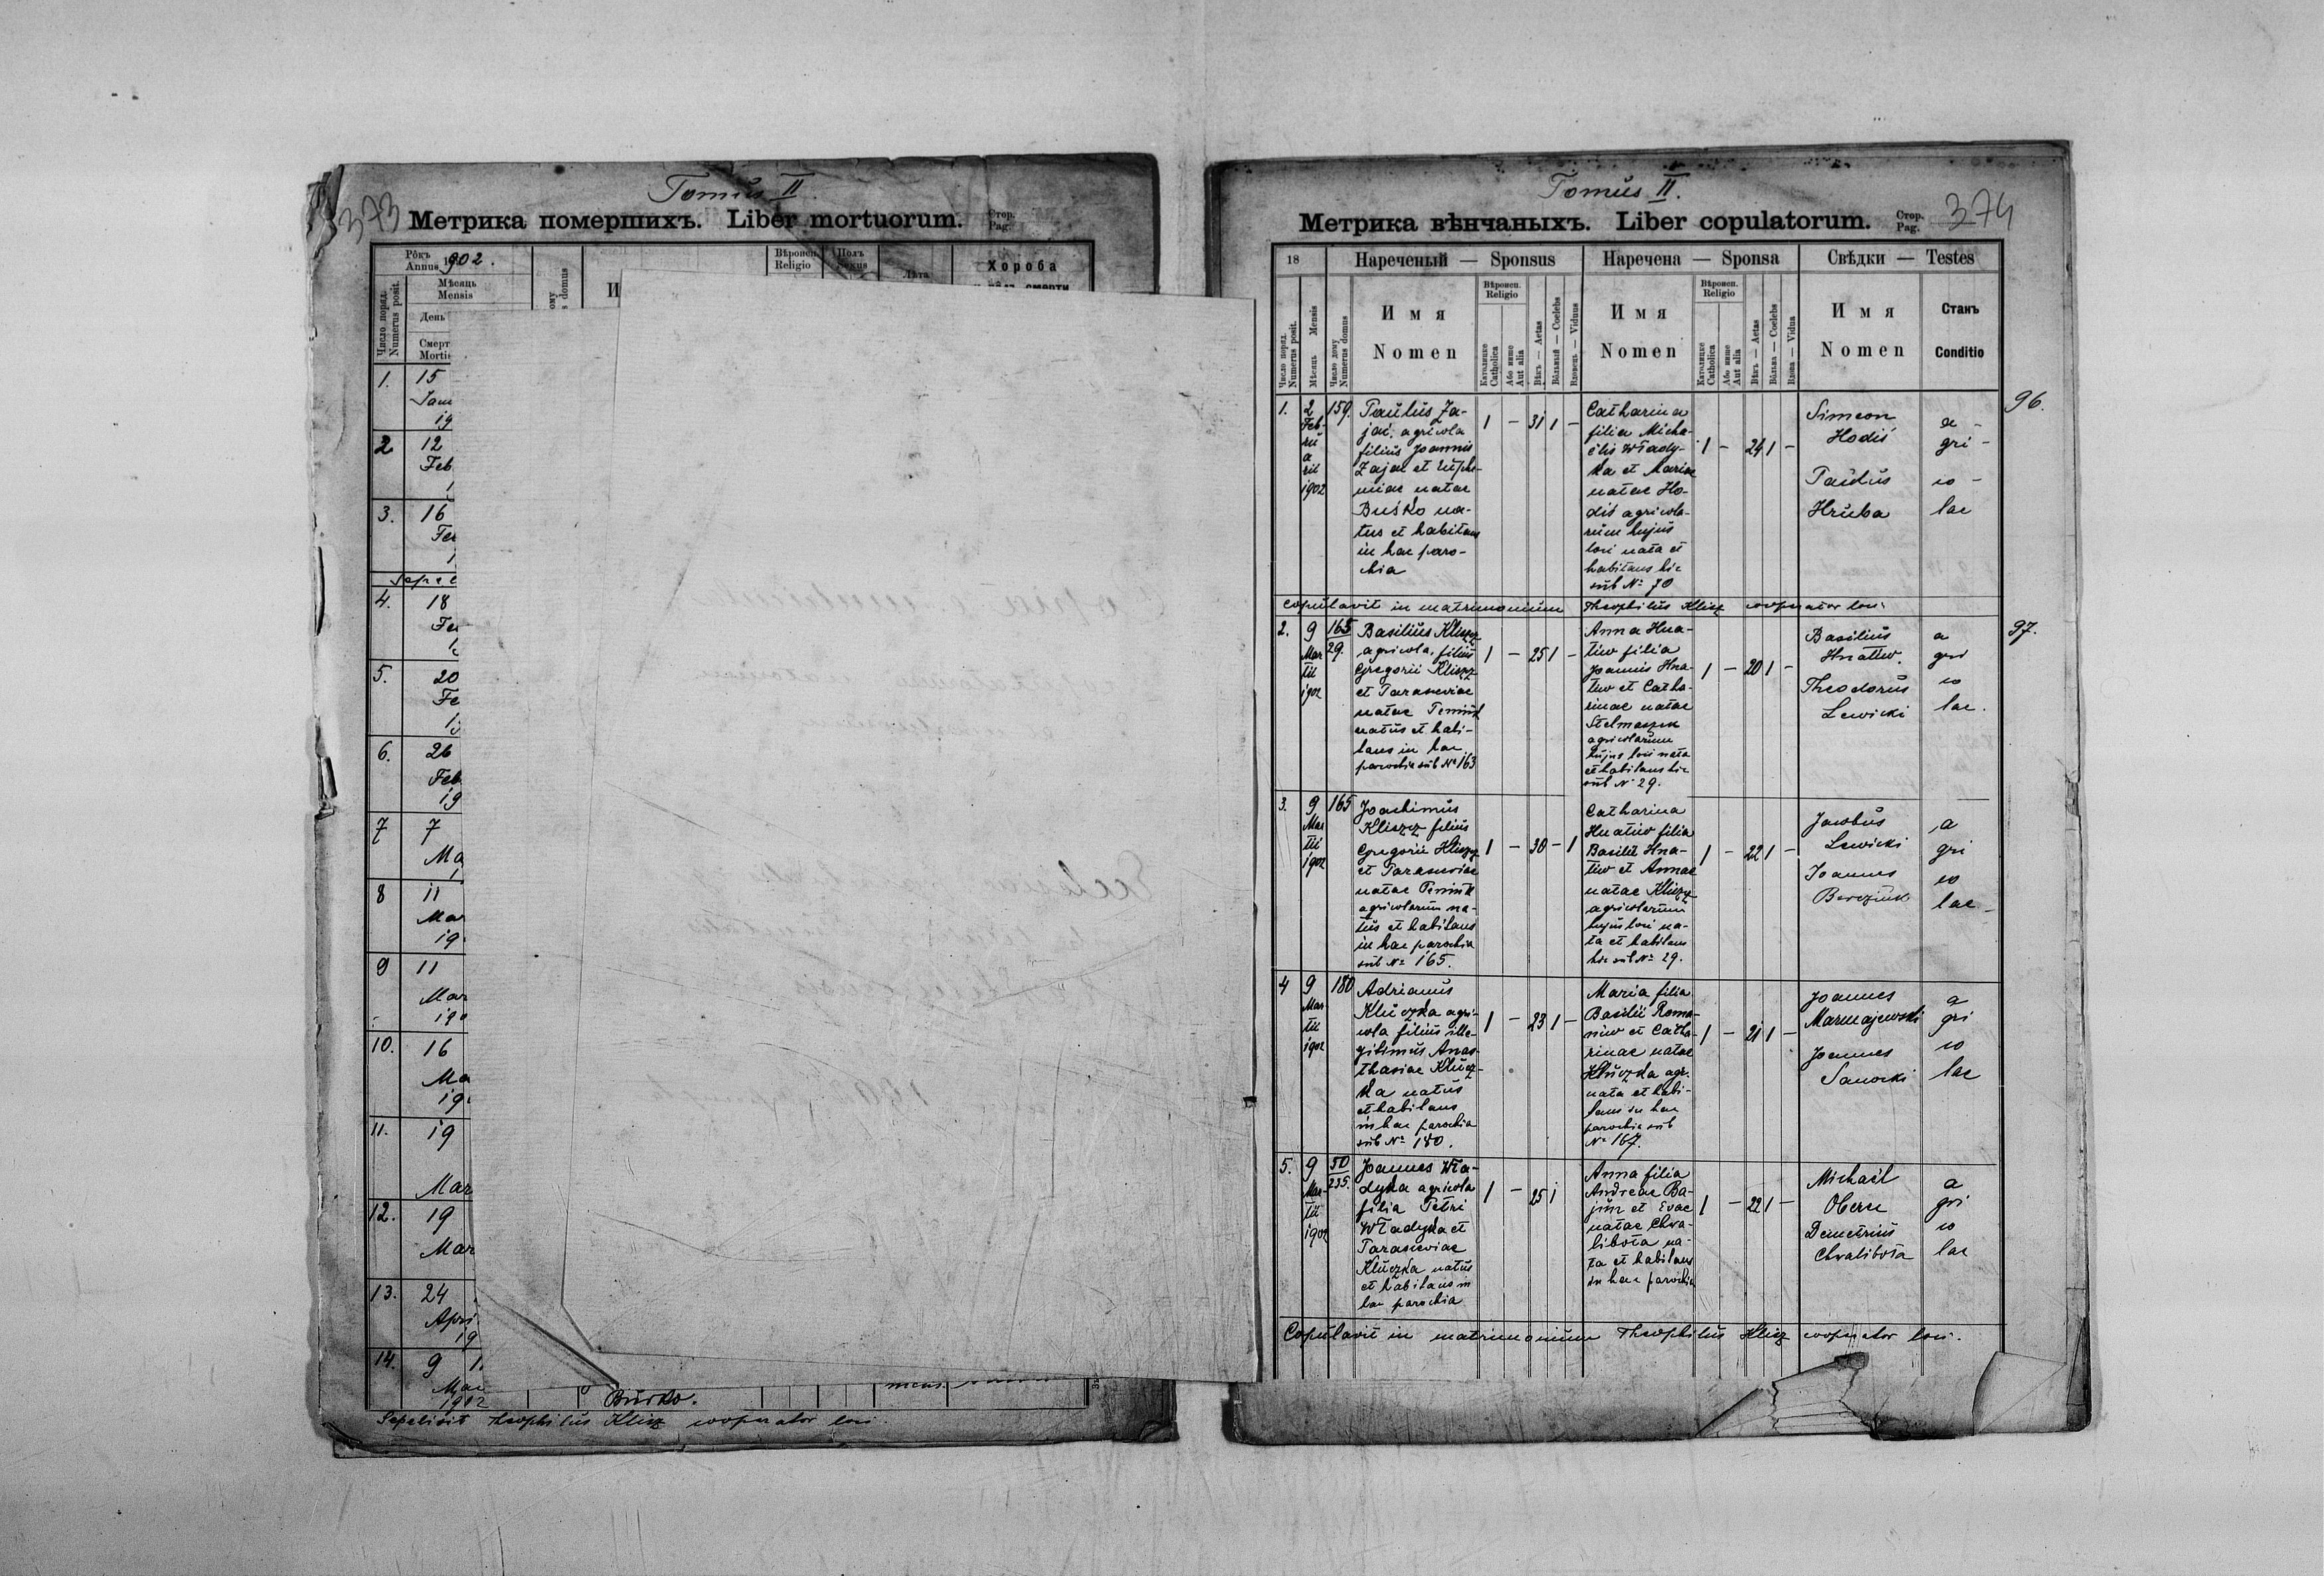 373
Tomus II.
Метрика помершихъ. Liber mortuorum.
Стор.
Pag.
Рôкъ
Annus 1902.
Мѣсяць
Mensis
День
Смерт
Mortis
Число поряд.
Numerus posit.
Вѣроисп.
Religio
Полъ
Sexus
Лѣта
Хороба
1. 15
Jan
19
2 12
Feb
3. 16
Feb
4. 18
5. 20
Fe
6. 26
Feb
19
7 7
Ma
8 11
Mar
19
9 11
Mar
190
10. 16
Ma
19
11. 19
Mar
12. 19
Mar
13. 24
Apri
19
14. 9
1902
Burko.
Sepelivit Theophilus Klisz cooperator loci
Tomus II.
Метрика вѣнчаныхъ. Liber copulatorum.
Стор.
Pag.
374
18
Нареченый — Sponsus
Наречена — Sponsa
Свѣдки — Testes
Число поряд.
Numerus posit.
Мѣсяць Mensis
Число дому
Numerus domus
Имя
Nomen
Вѣроисп.
Religio
Католицке
Catholica
Або инше
Aut alia
Вѣкъ — Aetas
Вôльный — Coelebs
Вдовець — Viduus
Имя
Nomen
Вѣроисп.
Religio
Католицке
Catholica
Або инше
Aut alia
Вѣкъ — Aetas
Вôльна — Coelebs
Вдова — Vidua
Имя
Nomen
Станъ
Conditio
96.
1. 2
Feb-
ru
a
rii
1902
159.
Paulus Za-
jac, agricola
filius Joannis
Zajac et Euphe-
miae natae
Buśko na-
tus et habitans
in hac paro-
chia
1 — 31 1 —
Catharina
filia Micha-
ëlis Włady-
ka et Mariae
natae Ho-
diś agricola-
rum hujus
loci nata et
habitans hic
sub № 70
1 — 24 1 —
Simeon
Hodiś
Paulus
Hruba
a -
gri -
co -
lae
Copulavit in matrimonium Theophilus Klisz cooperator loci
97.
2. 9
Mar
tii
1902
163
29.
Basilius Kliszcz
agricola, filius
Gregorii Kliszcz
et Parasceviae
natae
natus et habi-
tans in hac
parochia sub № 163
1 — 25 1 —
Anna Hna-
tiw filia
Joannis Hna-
tiw et Catha-
rinae natae
Stelmaszek
agricolarum
hujus loci nata
et habitans hic
sub № 29.
1 — 20 1 —
Basilius
Hnatiw.
Theodorus
Lewicki
a
gri
co
lae.
3. 9
Mar
tii
1902
165
Joachimus
Kliszcz filius
Gregorii Kliszcz
et Parasceviae
natae
agricolarum na-
tus et habitans
in hac parochia
sub № 165.
1 — 30 — 1
Catharina
Hnatiw filia
Basilii Hna-
tiw et Annae
natae Kliszcz
agricolarum
hujus loci na-
ta et habitans
hic sub № 29.
1 — 22 1 —
Jacobus
Lewicki
Joannes
a
gri
co
lae -
4 9
Mar
tii
1902
180
Adrianus
Kluczka agri-
cola filius ille-
gitimus Anas-
thasiae Klucz-
ka natus
et habitans
in hac parochia
sub № 180.
1 — 23 1 —
Maria filia
Basilii Roma-
niw et Catha-
rinae natae
Kluczka agr.
nata et habi-
tans in hac
parochia sub
№ 167.
1 — 21 1 —
Joannes
Marmajewski
Joannes
Sanocki
a
gri
co
lae
5. 9
Mar-
tii
1902
50
235.
Joannes Wła-
dyka agricola
filia Petri
Władyka et
Parasceviae
Kluczka natus
et habitans in
hac parochia
1 — 25 1
Anna filia
Andreae Ba-
et Evae
natae Chwa-
liboła na-
ta et habitans
in hac parochia
1 — 22 1 —
Michaël
Demetrius
Chwaliboła
a
gri
co
lae
Copulavit in matrimonium Theophilus Klisz cooperator loci.